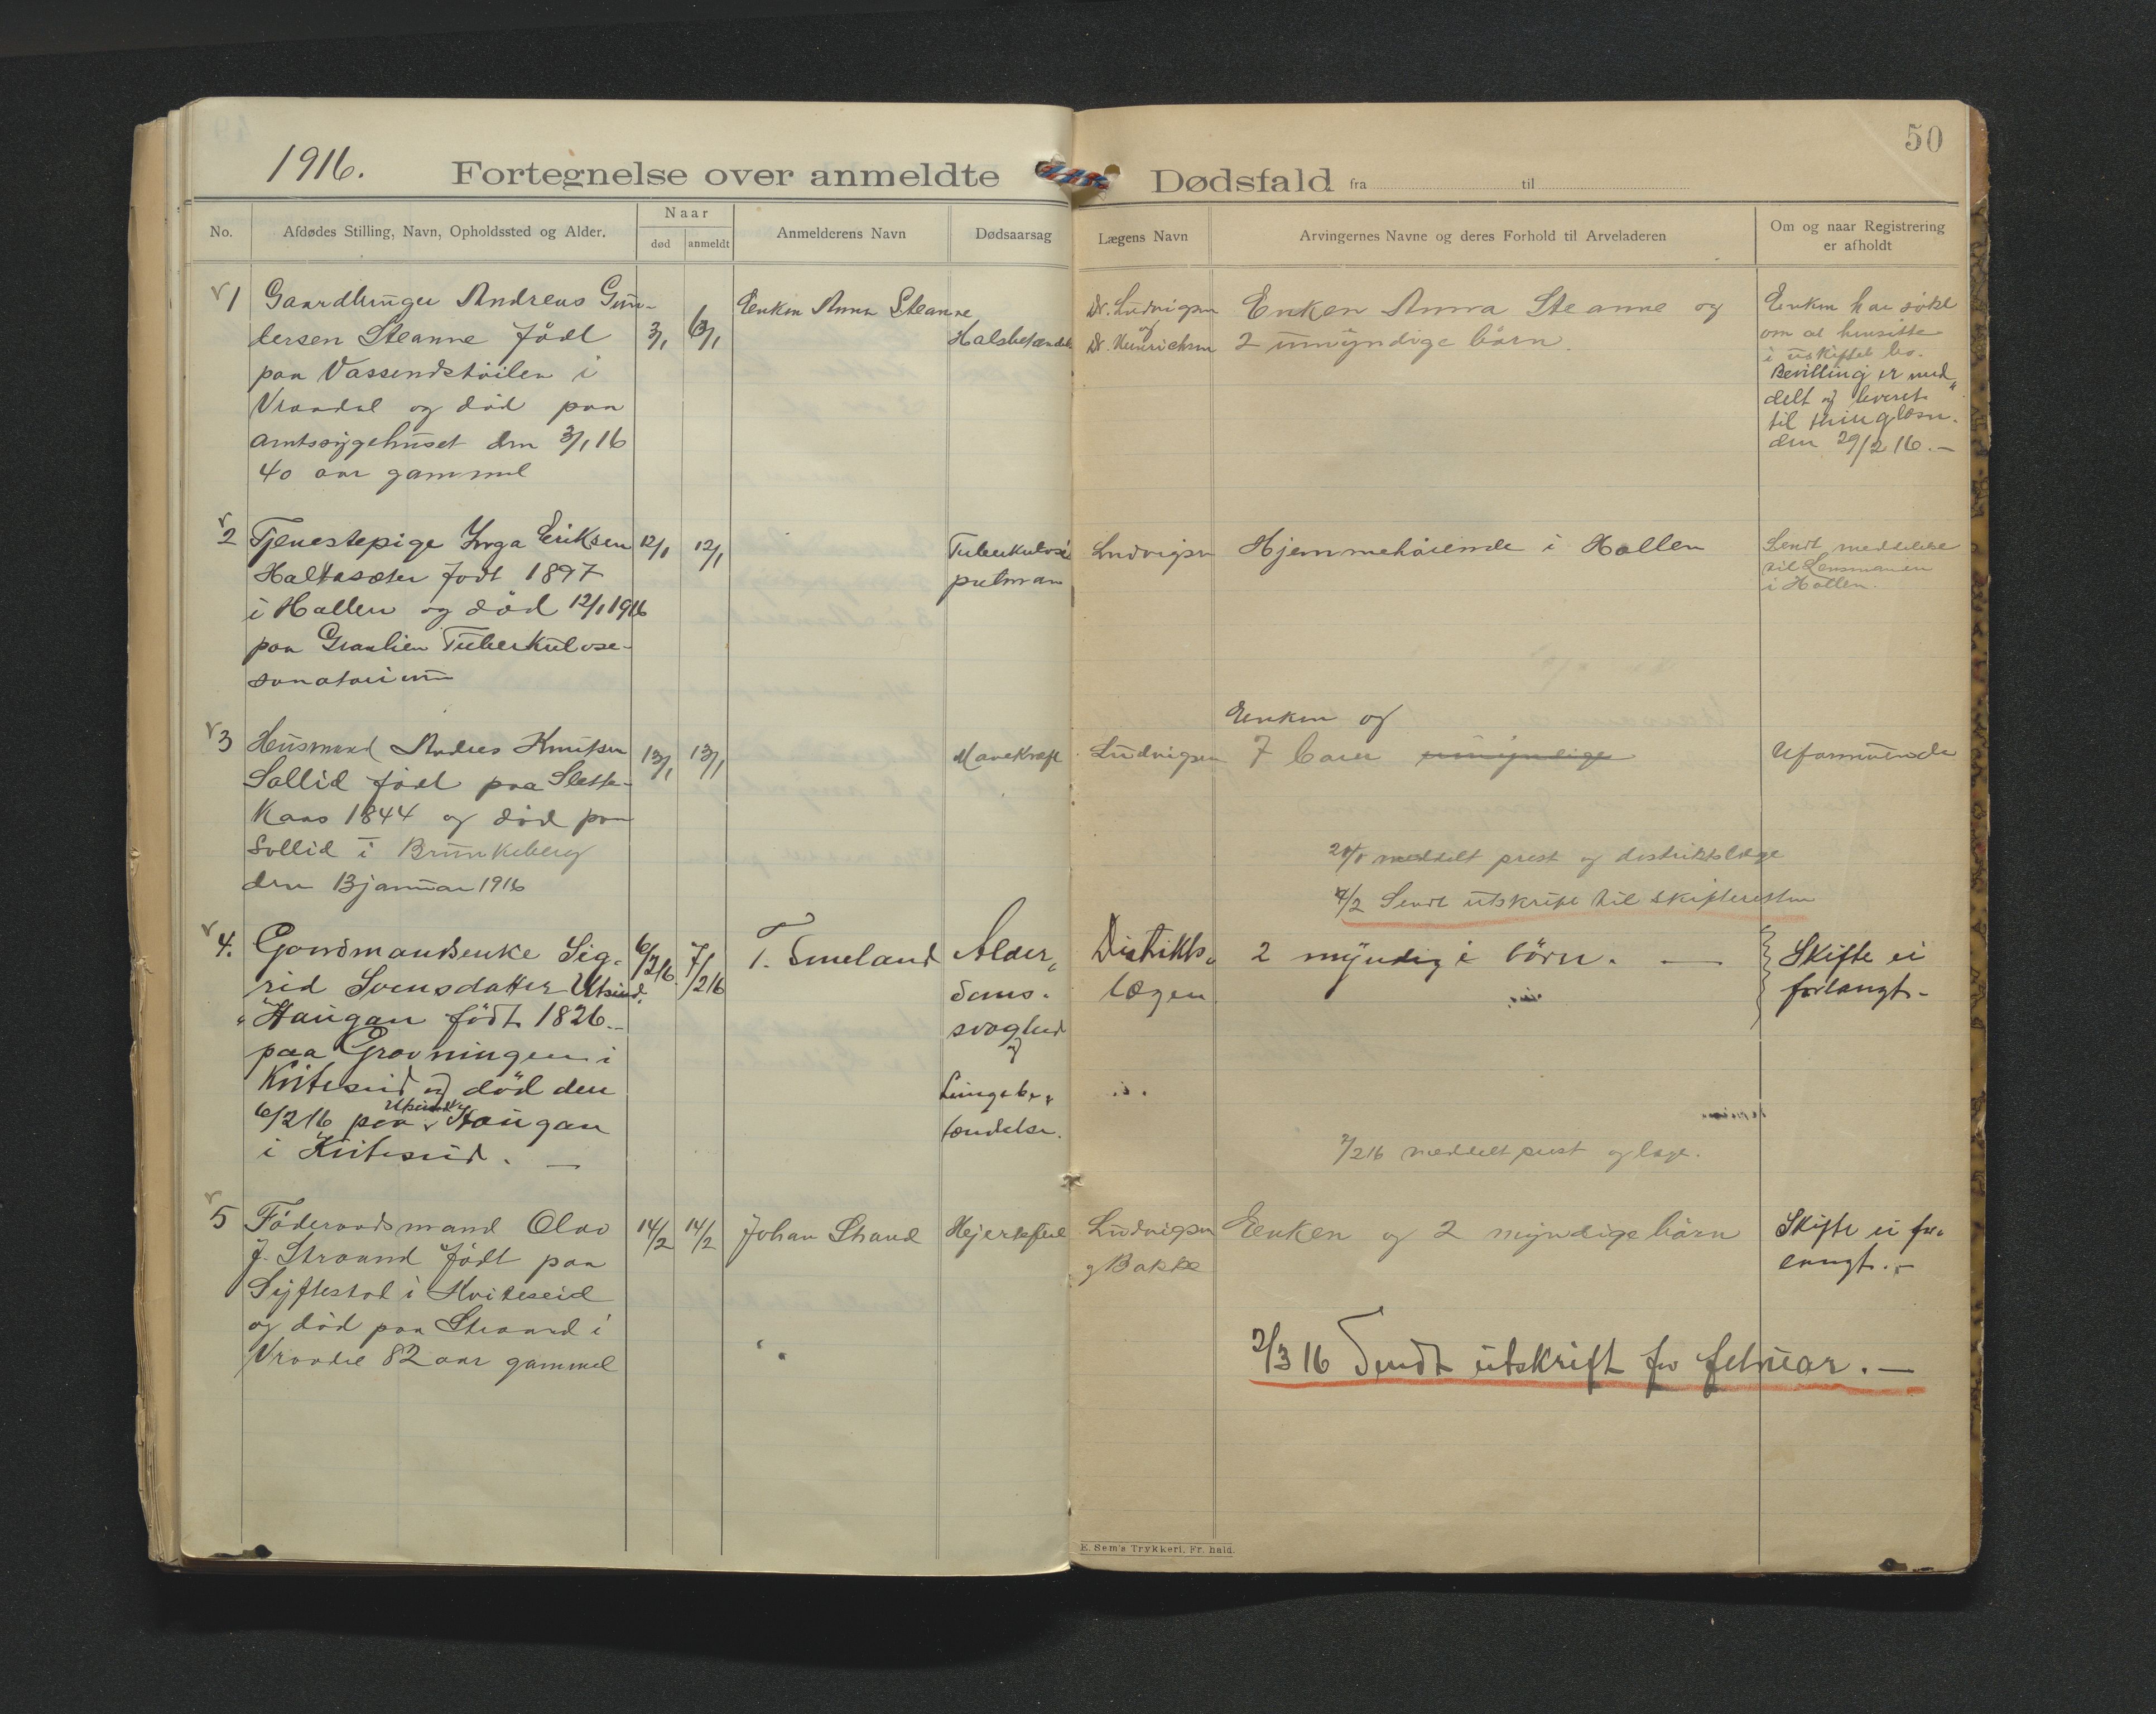 50
1916.
Fortegnelse over anmeldte Dødsfald fra til
No.
Afdødes Stilling, Navn, Opholdssted og Alder.
Naar
død
anmeldt
Anmelderens Navn
Dødsaarsag
Lægens Navn
Arvingernes Navne og deres Forhold til Arveladeren
Om og naar Registrering
er afholdt
1
Gaardbruger Andreas Gun-
dersen Steanne født
paa Vassendstöilen i
Vraadal og död paa
amtssygehuset den 3/1 16
40 aar gammel
3/1
6/1
Enken Anna Steanne
Halsbetændels
Dr. Ludvigsen
og
Dr. Heinrichsen
Enken Anna Steanne og
2 umyndige börn.
Enken har sökt
om at hensitte
i uskiftet bo.
Bevilling er med-
delt og leveret
til thinglæsn.
den 29/2 16.—
2
Tjenestepige Inga Eriksen
Haltasæter født 1897
i Hallen og död 12/1 1916
paa Granlien Tuberkulose-
sanatorium
12/1
12/1
Tuberkulosi
pulman
Ludvigsen
Hjemmehörende i Hallen
Sendt meddelelse
til Lensmanden
i Hallen.
3
Husmand Andres Knutsen
Sollid födt paa Slette-
kaas 1844 og död paa
Sollid i Brunkeberg
den 13 januar 1916
13/1
13/1
Mavekræft
Ludvigsen
Enken og
7 barn umyndige
Uformuende
20/1 meddelt prest og distriktslæge
4/2 Sendt utskrift til skifteretten
4.
Gaardmandsenke Sig-
rid Svensdatter Utsund.
Haugan født 1826.-
paa Grovningen i
Kviteseid og död den
6/2 16 paa Utsund. Haugan
i Kviteseid. —
6/2 16.
7/2 16
T. Smeland
Alder-
doms-
svaghed
og
Lungebe-
tændelse.
Distrikts-
lægen
2 myndige börn. —
Skifte ei
forlangt.-
7/2 16 meddelt prest og læge.
5
Föderaadsmand Olav
J. Straand födt paa
Syftestad i Kviteseid
og död paa Straand i
Vraadal 82 aar gammel
14/2
14/2
Johan Straand
Hjertefeil
Ludvigsen
og Bakke
Enken og 2 myndige börn
Skifte ei for-
langt.-
2/3 16 Sendt utskrift for februar.—
E. Sem's Trykkeri, Fr. hald.